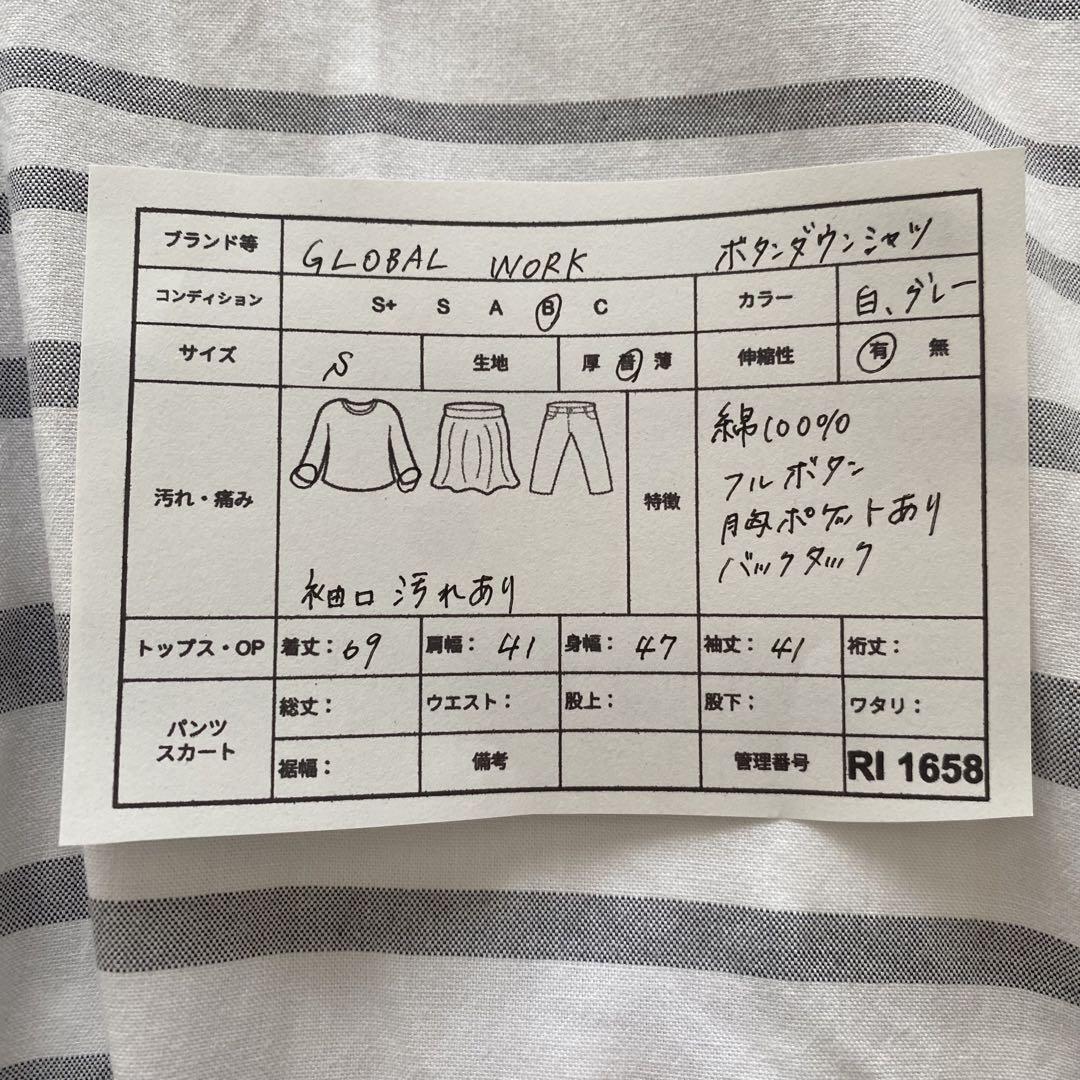 ブランド等 GLOBAL WORK ボタンダウンシャツ
コンディション S+ S A B C カラー 白、グレー
サイズ S 生地 厚 普 薄 伸縮性 有 無
汚れ・痛み 袖口汚れあり
特徴 綿100%
フルボタン
胸ポケットあり
バックタック
トップス・OP 着丈:69 肩幅:41 身幅:47 袖丈:41 裄丈:
パンツ スカート 総丈: ウエスト: 股上: 股下; ワタリ:
裾幅: 備考 管理番号 RI 1658